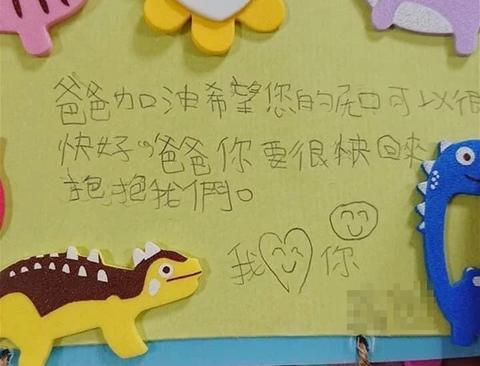 爸爸加油希望您的口可以很
快好。爸爸你要很快回來
抱抱我們。
我 你